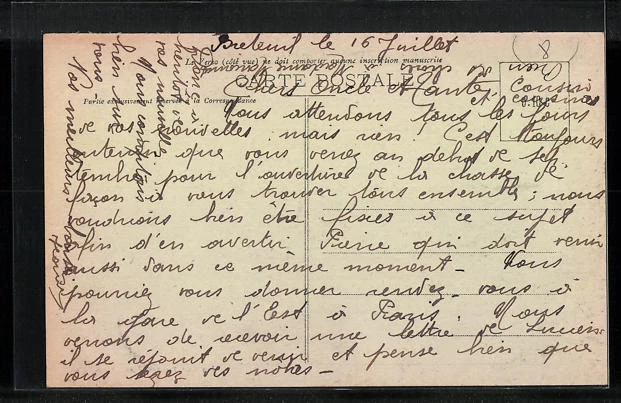 Breteuil le 16 Juillet
Le Verso (côté vue) ne doit comporter aucune inscription manuscrite
CARTE POSTALE
Partie exclusivement réservée à la Correspondance
Chers Oncle et Tante,
et cousin
cousines
Nous attendons tous les jours
de vos nouvelles; mais rien! C'est toujours
entendu que vous venez au début de sep-
tembre pour l'ouverture de la chasse de
façon à vous trouver tous ensemble; nous
voudrions bien être fixés à ce sujet
afin d'en avertir Pierre qui doit venir
aussi dans ce même moment - Vous
pourriez vous donner rendez-vous à
la gare de l'Est à Paris. Nous
venons de recevoir une lettre de Lucien
il se réjouit de venir et pense bien que
vous serez des nôtres -
vos nouvelles
Nous
bien
vous
Nos meilleurs
8